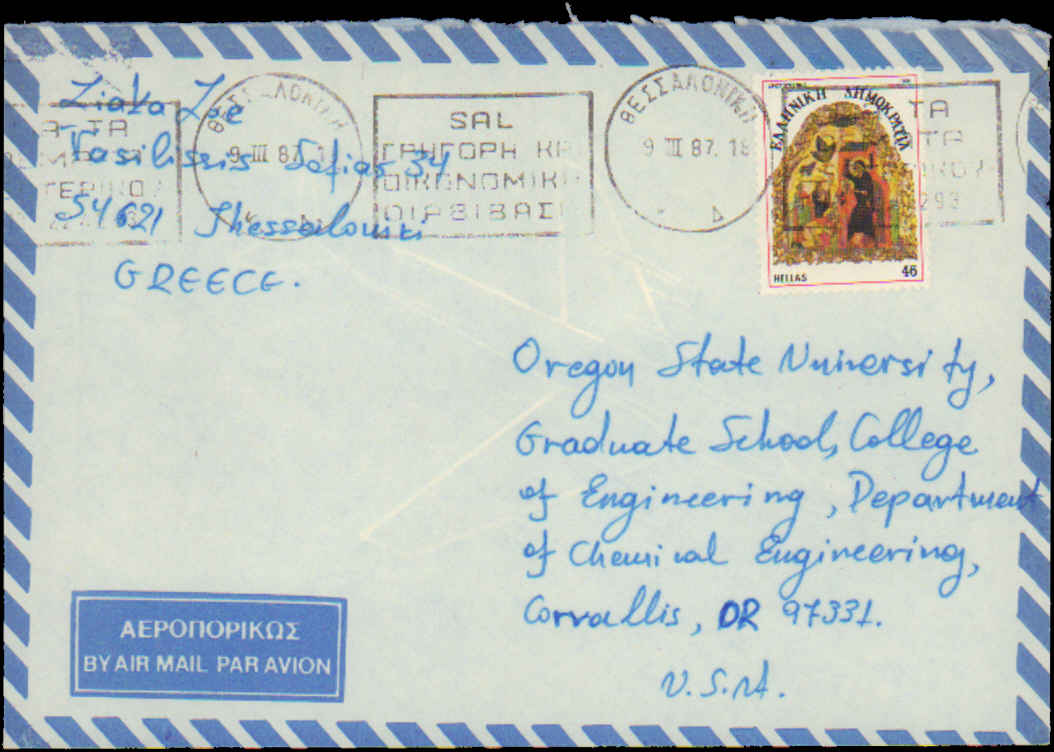 Ziaka Zoe
Vasilissis Sofias 34
54621 Thessaloniki
GREECE.
ΘΕΣΣΑΛΟΝΙΚΗ
9 III 87. 18
Δ
SAL
ΓΡΗΓΟΡΗ ΚΑ
ΟΙΚΟΝΟΜΙΚ
ΔΙΑΒΙΒΑΣ
ΘΕΣΣΑΛΟΝΙΚΗ
9 III 87. 18
Δ
ΤΑ
293
ΕΛΛΗΝΙΚΗ ΔΗΜΟΚΡΑΤΙΑ
HELLAS 46
Oregon State University,
Graduate School, College
of Engineering, Department
of Chemical Engineering,
Corvallis, OR 97331.
U.S.A.
ΑΕΡΟΠΟΡΙΚΩΣ
BY AIR MAIL PAR AVION